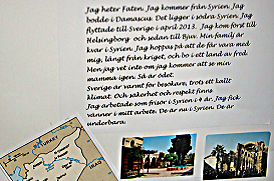 Jag heter Faten. Jag kommer från Syrien. Jag
bodde i Damascus. Det ligger i södra Syrien. Jag
flyttade till Sverige i april 2013. Jag kom först till
Helsingborg och sedan till Bjuv. Min familj är
kvar i Syrien. Jag hoppas på att de får vara med
mig, långt från kriget, och bo i ett land av fred.
Men jag vet inte om jag kommer att se min
mamma igen. Så är ödet.
Sverige är varmt för besökare, trots ett kallt
klimat. Och säkerhet och respekt finns
Jag arbetade som frisör i Syrien i år. Jag fick
vänner i mitt arbete. De är nu i Syrien. De är
underbara.
IRAN